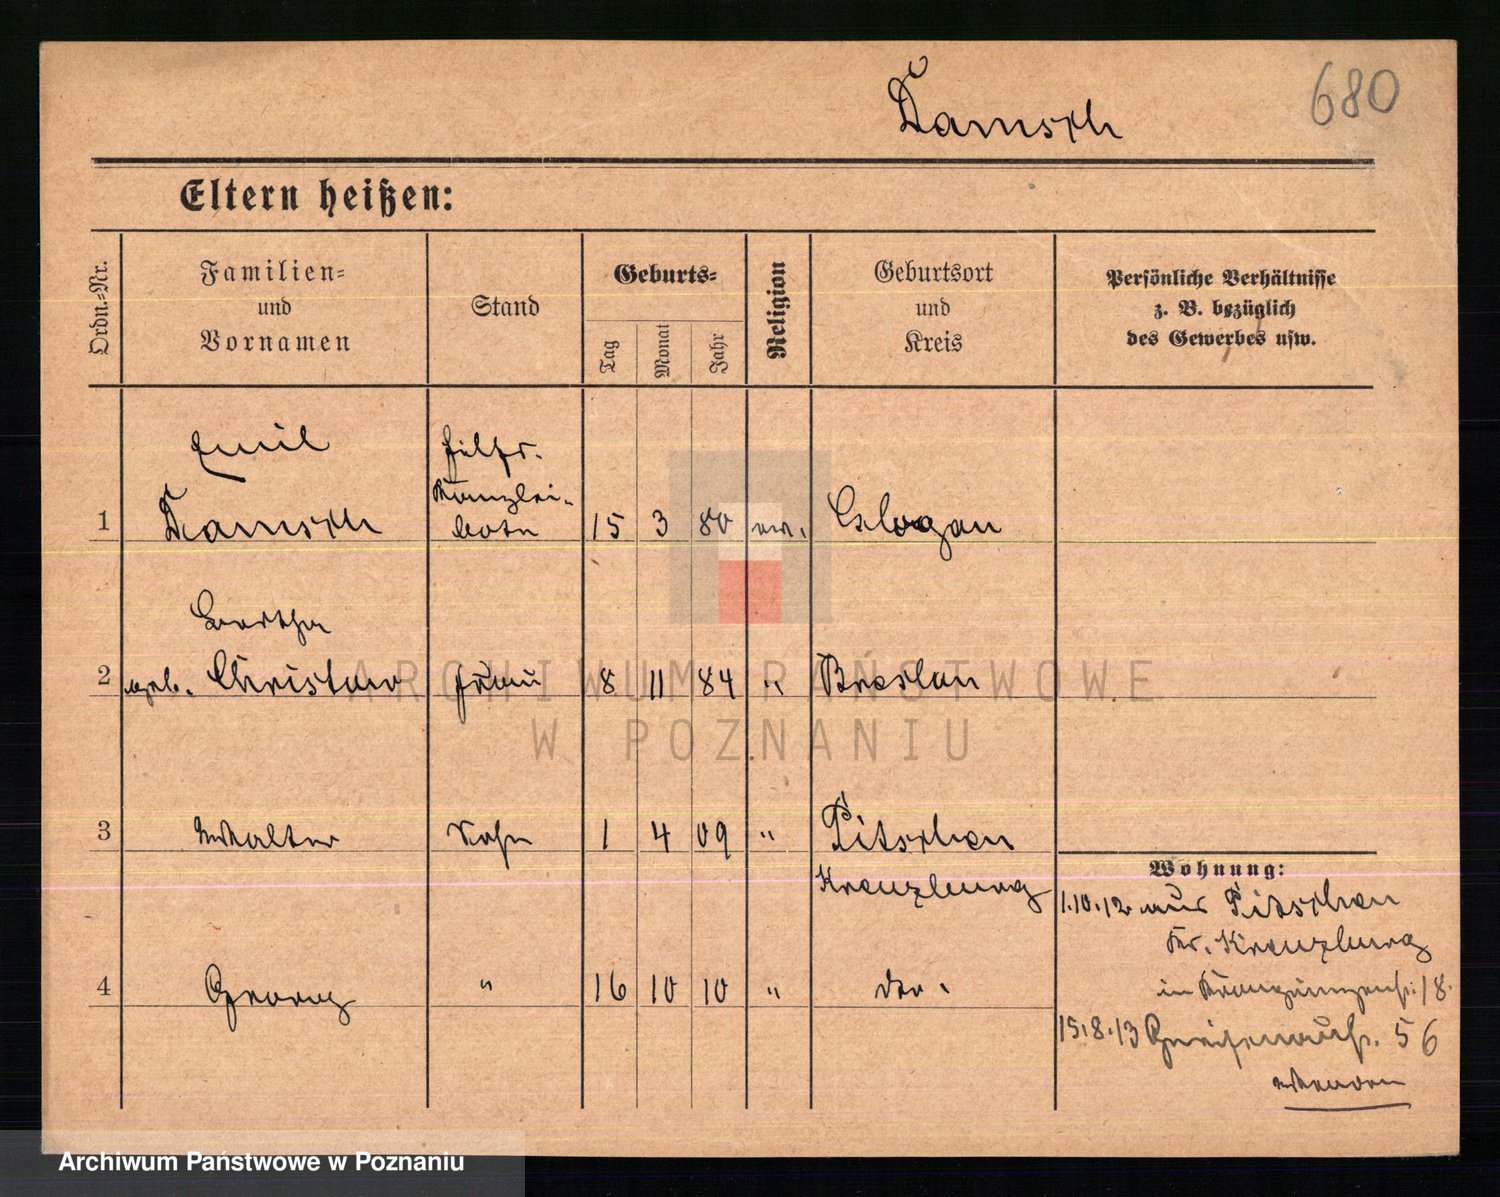 Damsch
680
Eltern heißen:
Ordn.-Nr.
Familien-
und
Vornamen
Stand
Geburts-
Tag
Monat
Jahr
Religion
Geburtsort
und
Kreis
Persönliche Verhältnisse
z. B. bezüglich
des Gewerbes usw.
Emil
Hilfs-
Kanzlei-
1 Damsch bote 15 3 80 ev. Glogau
Bertha
2 geb. Christow Frau 8 11 84 " Breslau
3 Walter Sohn 1 4 09 " Pitschen
Wohnung:
Kreuzburg
1.10.12 aus Pitschen
Kr. Kreuzburg
4 Georg " 16 10 10 " do.
in 18.
15.8.13 56
ARCHIWUM PAŃSTWOWE
W POZNANIU
Archiwum Państwowe w Poznaniu